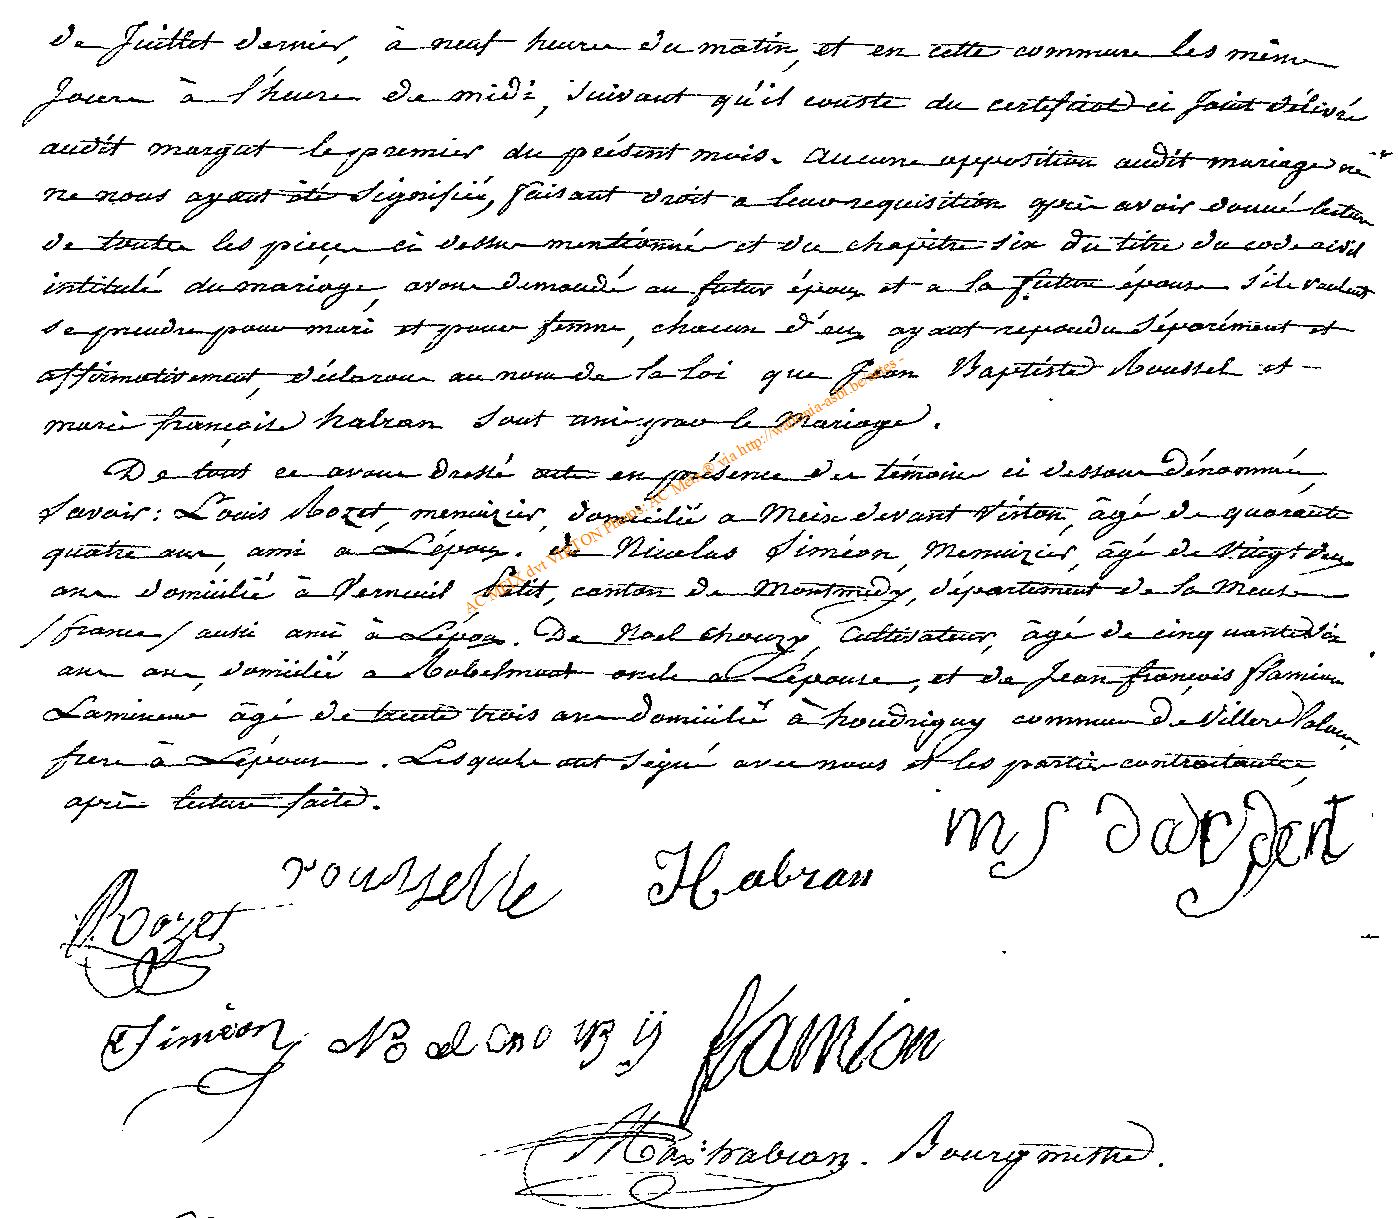 de Juillet dernier, à neuf heures du matin, et en cette commune les mêmes
Jours à l'heure de midi, suivant qu'il conste du certificat ci Joint délivré
audit margat le premier du présent mois. Aucune opposition audit mariage
ne nous ayant été signifiée, faisant droit a leur requisition après avoir donné lecture
de toutes les pieces ci dessus mentionnées et du chapitre six du titre du code civil
intitulé du mariage, avons demandé au futur époux et a la future épouse s'ils veulent
se prendre pour mari et pour femme, chacun d'eux ayant repondu séparément et
affirmativement, déclarons au nom de la loi que Jean Baptiste Roussel et
marie françoise habran sont unis par le Mariage.
De tout ce avons dressé acte en présence des témoins ci dessous dénommés,
Savoir: Louis Rozet, menuizier, domicilié a Meix devant Virton, âgé de quarante
quatre ans, ami a L'époux. de Nicolas Siméon, Menuizier, âgé de Vingt deux
ans domicilié à Verneuil Petit, canton de Montmédy, département de la Meuse
/france/ aussi ami à L'époux. De Noel Chouzy, Cultivateur, âgé de cinquante
ans, domicilié a Robelmont oncle a L'épouse, et de Jean françois flamion
Lamineur âgé de trente trois ans domicilié à houdrigny commune de Villers
frere à L'épouse. Lesquels ont signé avec nous et les parties contractantes,
après lecture faite.
AC MEIX dvt VIRTON Photos: AC Meix® via http://wallonia-asbl.be/actes -
m s dargent
rousselle Habran
Rozet
Siméon flamion
habran. Bourgmestre.